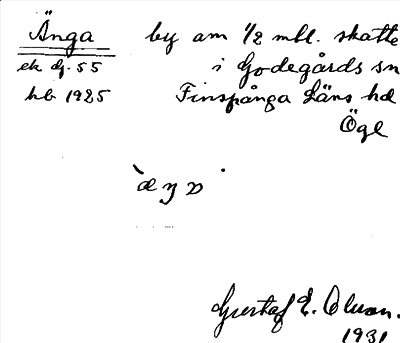 Änga by am 1/2 mtl. skatte
ek df. 55 i Godegårds sn
hb 1925 Finspånga Läns hd
Ögl
Gustaf E. Olsson.
1931